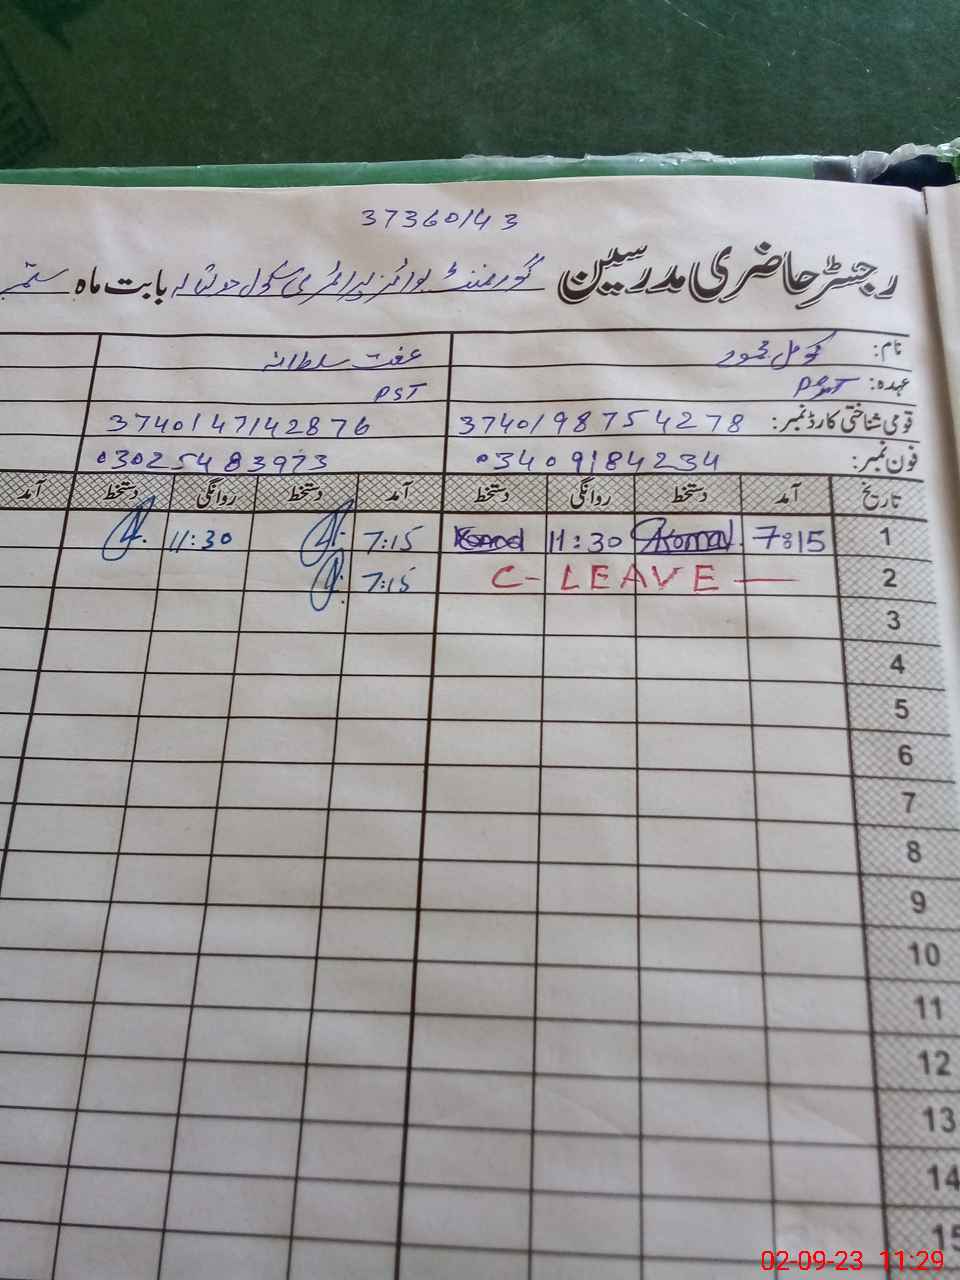 37360143
رجسٹر حاضری مدرسین گورنمنٹ بوائز پرائمری سکول بابت ماہ ستمبر
نام: کومل محمود عفت سلطانہ
عہدہ: PST PST
قومی شناختی کارڈ نمبر: 3740198754278 3740147142876
فون نمبر: 03409184234 03025483973
تاریخ آمد دستخط روانگی دستخط آمد دستخط روانگی دستخط آمد
1 7:15 Komal 11:30 Komal 7:15 11:30
2 C- LEAVE — 7:15
3
4
5
6
7
8
9
10
11
12
13
14
15
02-09-23 11:29